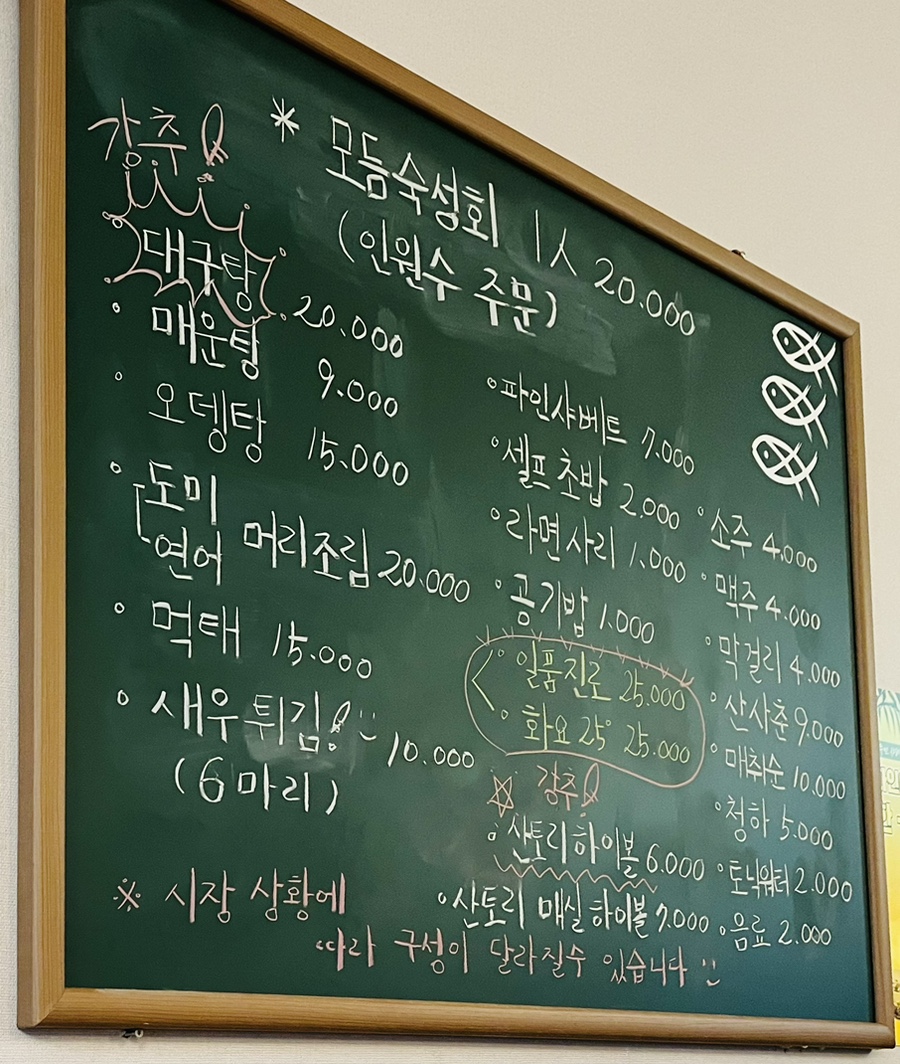 강추!
* 모듬숙성회 1人 20.000
(인원수 주문)
대구탕 20.000
매운탕 9.000
오뎅탕 15.000
도미
연어 머리조림 20.000
먹태 15.000
새우튀김! 10.000
(6마리)
파인샤베트 7.000
셀프초밥 2.000
라면사리 1.000
공기밥 1.000
일품진로 25.000
화요 25° 25.000
☆ 강추!
산토리하이볼 6.000
산토리 매실하이볼 7.000
소주 4.000
맥주 4.000
막걸리 4.000
산사춘 9.000
매취순 10.000
청하 5.000
토닉워터 2.000
음료 2.000
※ 시장 상황에
따라 구성이 달라질수 있습니다